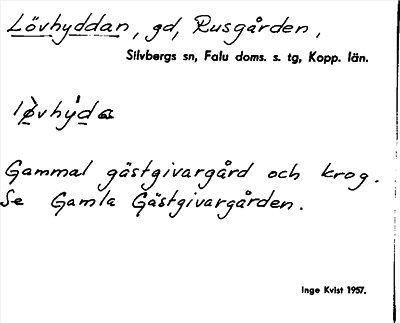 Lövhyddan, gd, Rusgården,
Silvbergs sn, Falu doms. s. tg, Kopp. län.
Gammal gästgivargård och krog.
Se Gamla Gästgivargården.
Inge Kvist 1957.